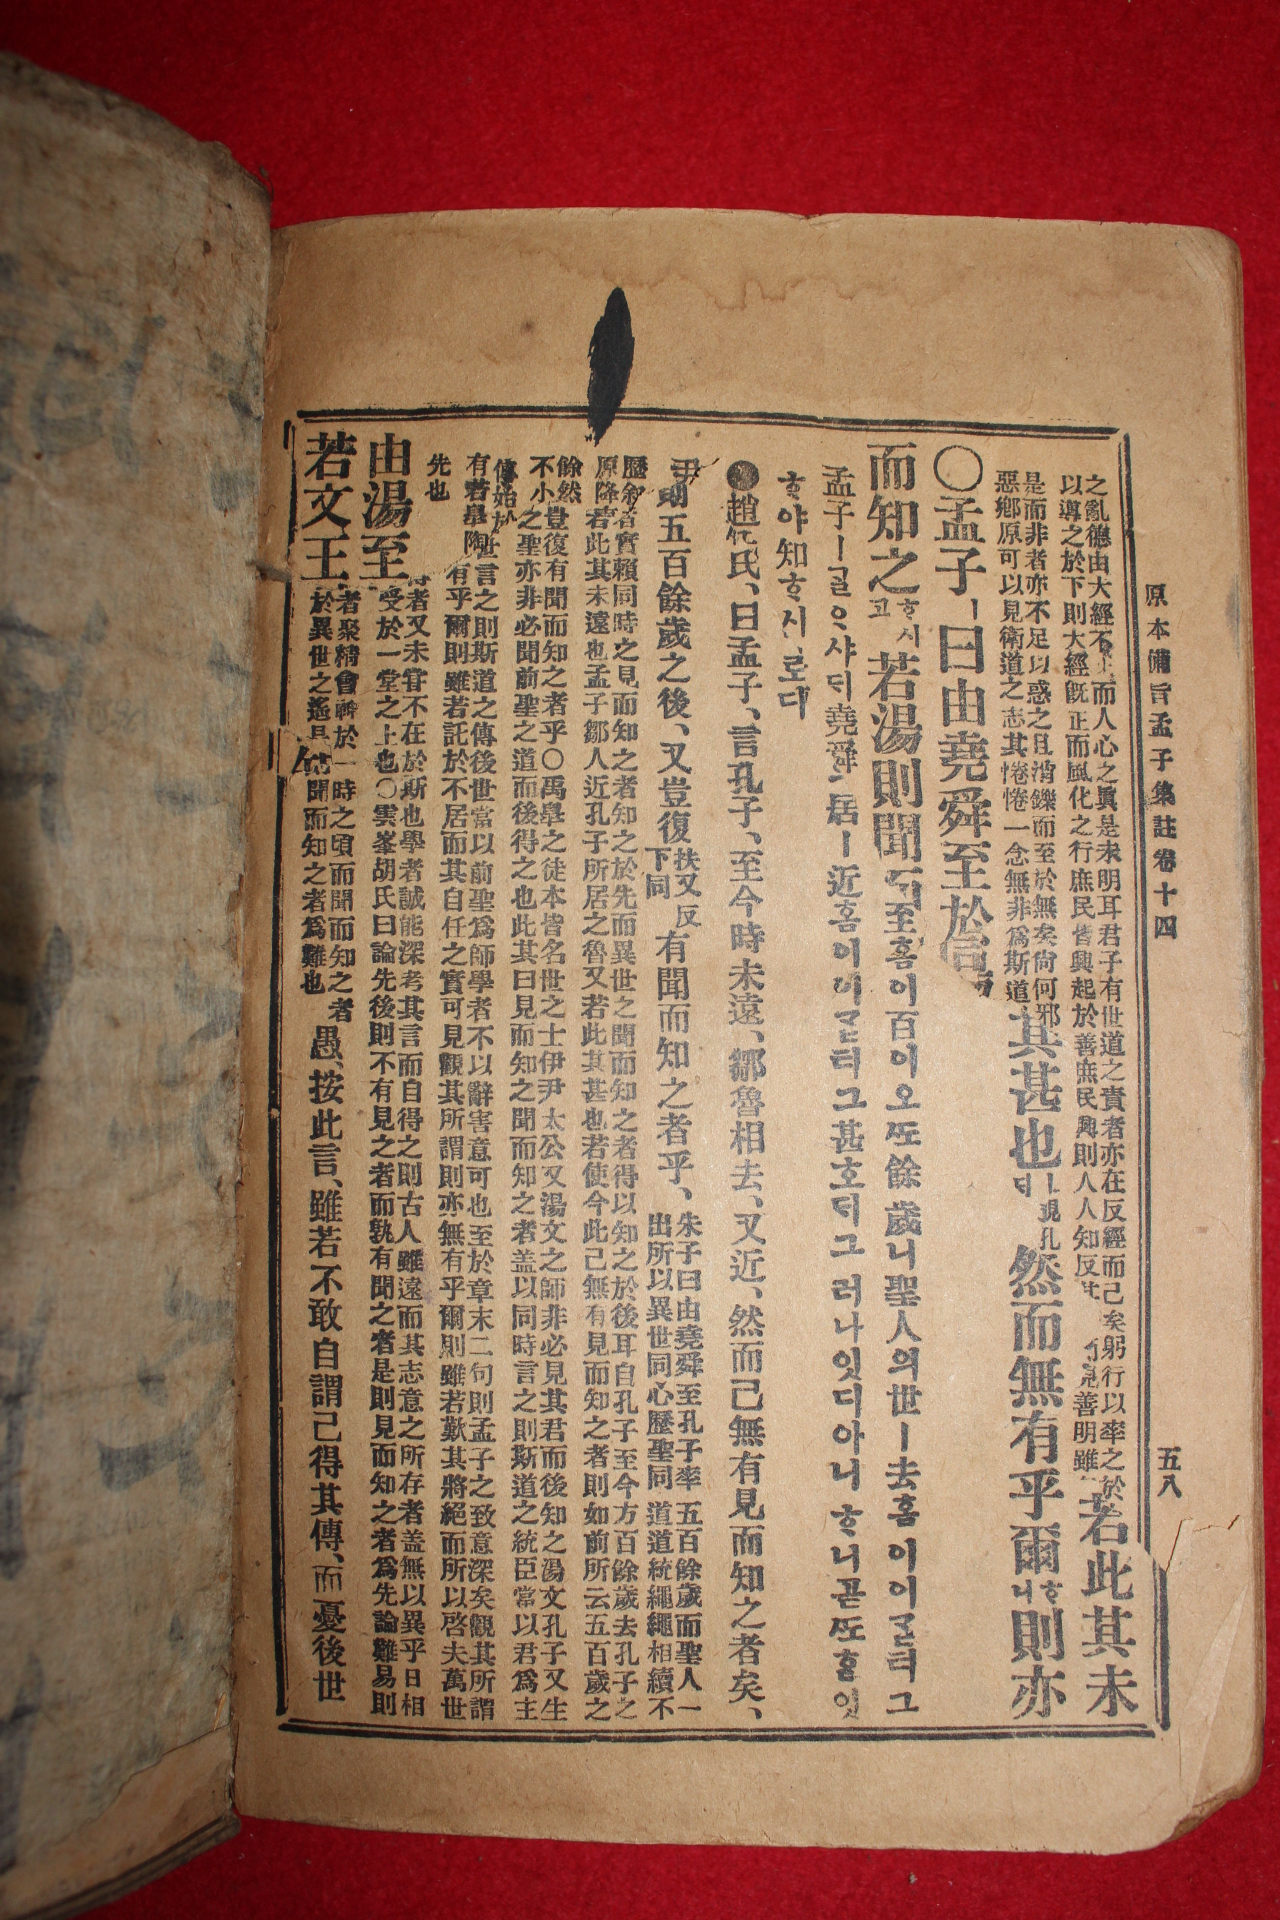 原本備旨孟子集註卷十四
五八
之亂德由大經不正而人心之眞是未明耳君子有世道之責者亦在反經而已矣躬行以率之於
以導之於下則大經旣正而風化之行庶民皆興起於善庶民興則人人知反其 善明雖
若此其未
是而非者亦不足以惑之且消鑠而至於無矣尙何邪
惡鄕原可以見衛道之志其惓惓一念無非爲斯道
其甚也 然而無有乎爾 則亦
○孟子ㅣ曰由堯舜至於
而知之 若湯則聞而
至홈이百이오ᄯᅩ餘歲니聖人의世ㅣ去홈이이ᄀᆞᆮ티그
孟子ㅣᄀᆞᆯᄋᆞ샤ᄃᆡ堯舜
居ㅣ近홈이이ᄀᆞᆮ티그甚호ᄃᆡ그러나잇디아니ᄒᆞ니곧ᄯᅩ홈잇
ᄒᆞ야知ᄒᆞ시 로다
趙氏、曰孟子、言孔子、至今時未遠、鄒魯相去、又近、然而已無有見而知之者矣、
五百餘歲之後、又豈復
扶又反
下同
有聞而知之者乎、
朱子曰由堯舜至孔子率五百餘歲而聖人一
出所以異世同心歷聖同道道統繩繩相續不
歷敘 者實賴同時之見而知之者知之於先而異世之聞而知之者得以知之於後耳自孔子至今方百餘歲去孔子之
若此其未遠也孟子鄒人近孔子所居之魯又若此其甚也若使今此已無有見而知之者則如前所云五百歲之
餘然 豈復有聞而知之者乎○禹皐之徒本皆名世之士伊尹太公又湯文之師非必見其君而後知之湯文孔子又生
不小 之聖亦非必聞前聖之道而後得之也此其曰見而知之聞而知之者盖以同時言之則斯道之統臣當以君爲主
世言之則斯道之傳後世當以前聖爲師學者不以辭害意可也至於章末二句則孟子之致意深矣觀其所謂
有若皐陶 有乎爾則雖若託於不居而其自任之實可見觀其所謂則亦無有乎爾則雖若歎其將絕而所以啓夫萬世
先也
由湯至
者又未嘗不在於斯也學者誠能深考其言而自得之則古人雖遠而其志意之所存者盖無以異乎日相
受於一堂之上也○雲峯胡氏曰論先後則不有見之者而孰有聞之者是則見而知之者爲先論難易則
若文王
者聚精會神於一時之頃而聞而知之者
於異世之遙 聞而知之者爲難也
愚、按此言、雖若不敢自謂已得其傳、而憂後世